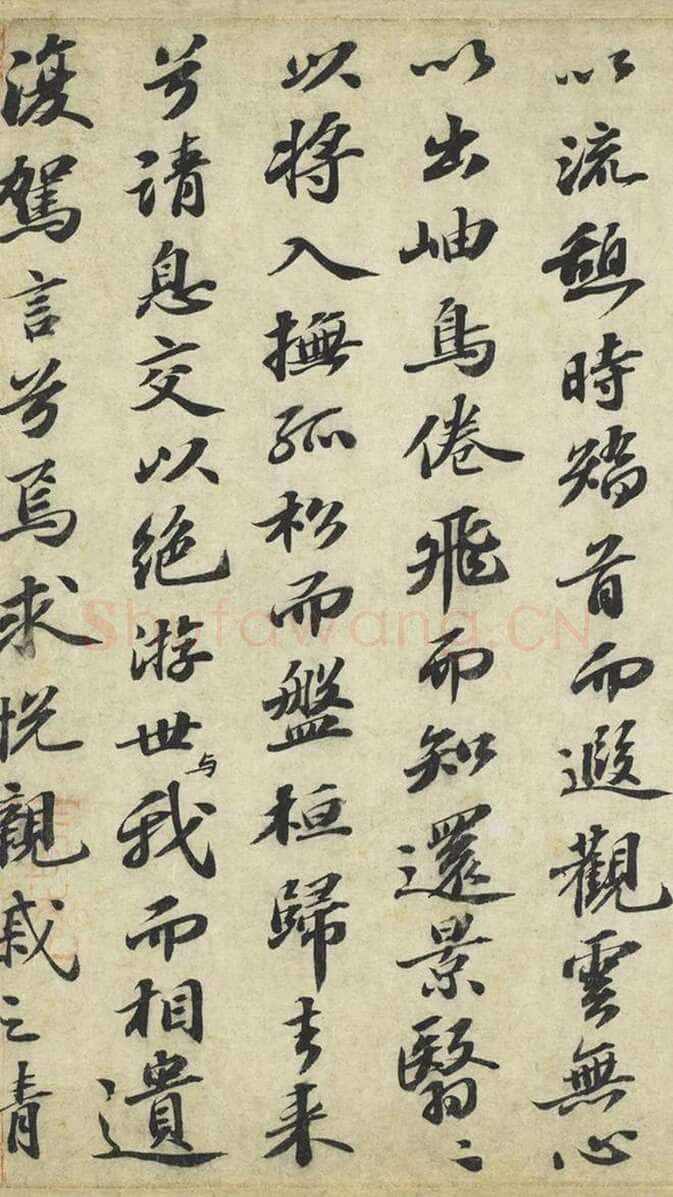 以流憩時矯首而遐觀雲無心
以出岫鳥倦飛而知還景翳〻
以將入撫孤松而盤桓歸去来
兮請息交以絶游世与我而相遺
復駕言兮焉求悅親戚之情
Shufawang.CN